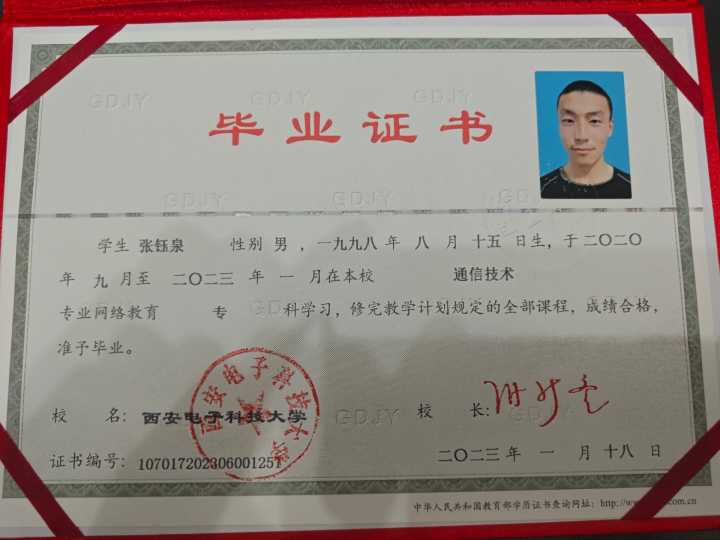 毕业证书
学生 张钰泉 性别 男 ，一九九八 年 八 月 十五 日生，于二〇二〇
年 九 月至 二〇二三 年 一 月在本校 通信技术
专业网络教育 专 科学习，修完教学计划规定的全部课程，成绩合格，
准予毕业。
校 名：西安电子科技大学
校 长：
证书编号：107017202306001251
二〇二三 年 一 月 十八 日
中华人民共和国教育部学历证书查询网址：http://www. .com.cn
西安电子科技大学
GDJY GDJY GDJY
GDJY GDJY GDJY
GDJY